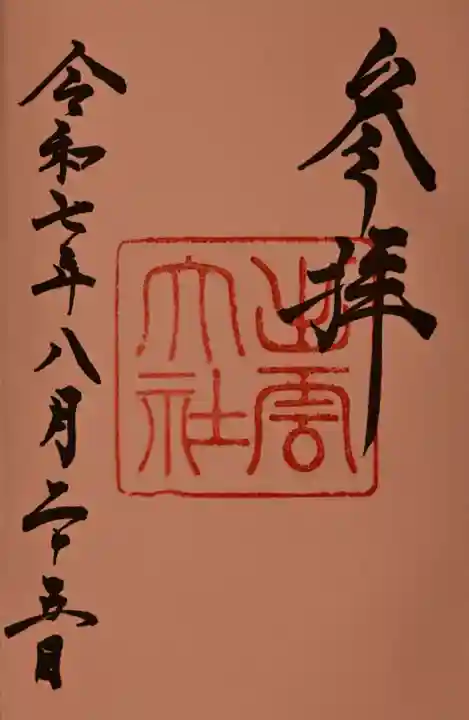 参拝
出雲
大社
令和七年八月二十五日